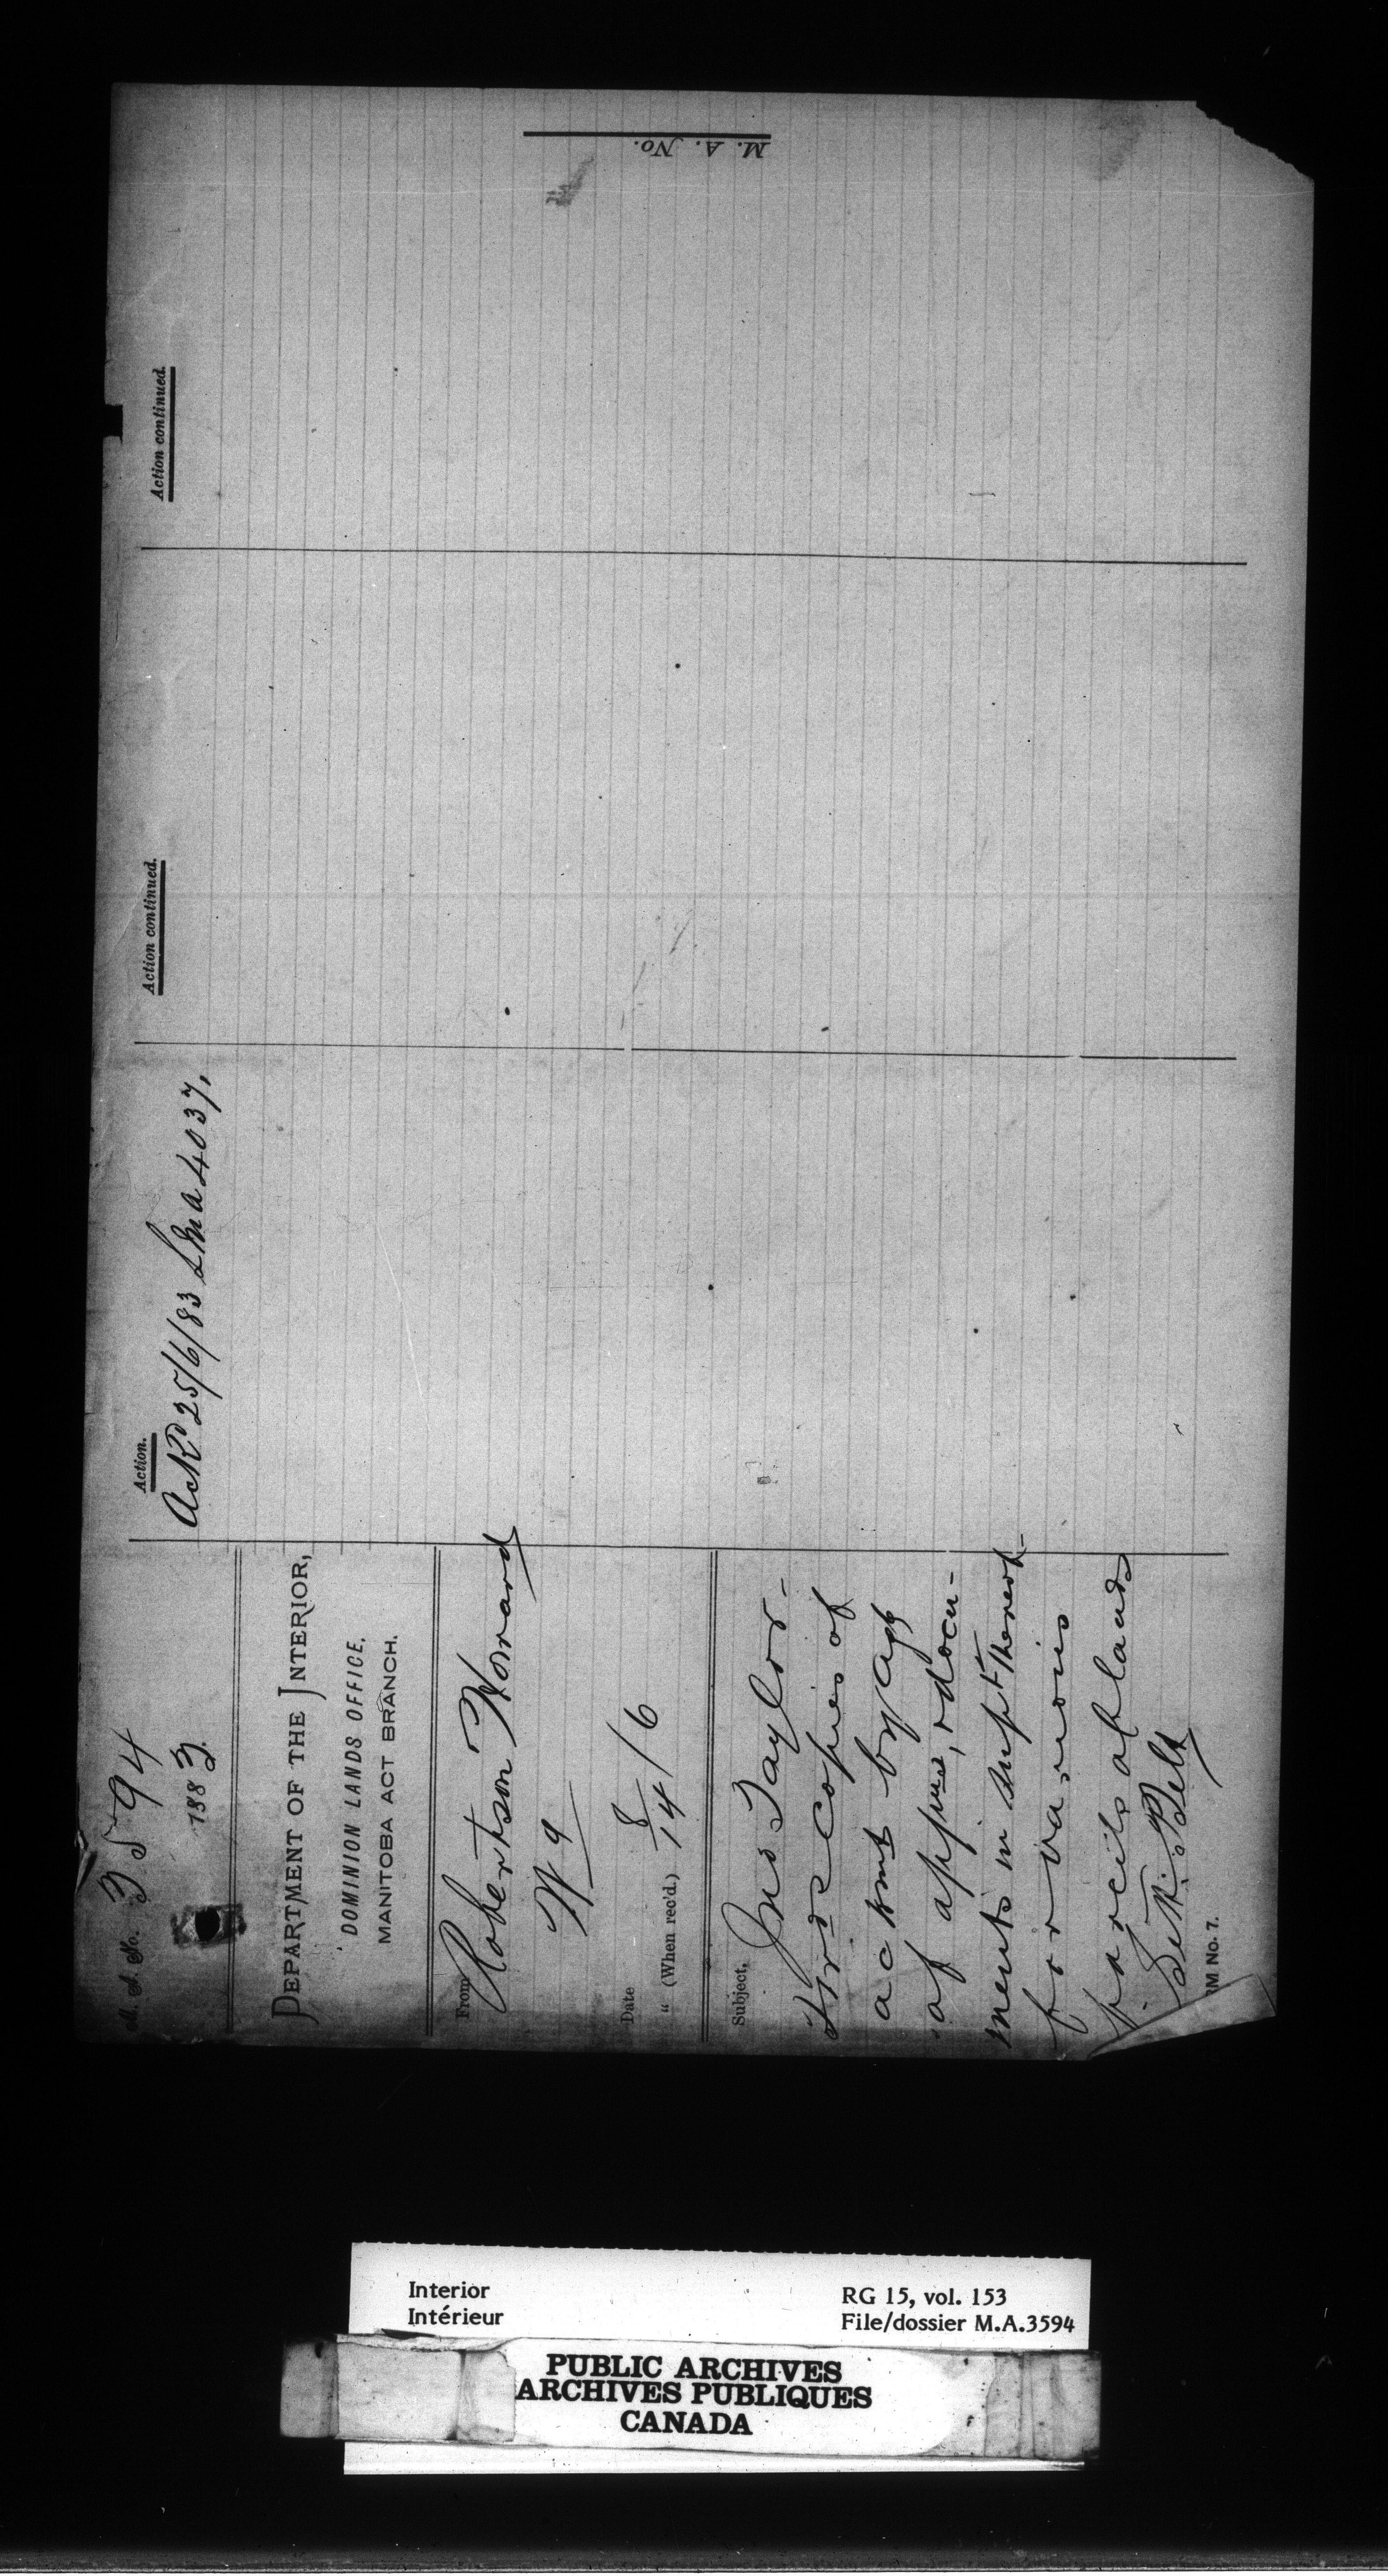 M. A. No. 3594
1883.
DEPARTMENT OF THE INTERIOR,
DOMINION LANDS OFFICE,
MANITOBA ACT BRANCH.
From Robertson Howard
Wg
Date 8
" (When rec'd.) 14/6
Subject, Jno Taylor-
Frds copies of
acknt by Agt
of appns, & docu-
ments in supt thereof
for various
parcels of land
St. Pet.
RM No. 7.
Action.
Ackd 25/6/83 LMA 4037,
Action continued.
Action continued.
M. A. No.
Interior
Intérieur
RG 15, vol. 153
File/dossier M.A.3594
PUBLIC ARCHIVES
ARCHIVES PUBLIQUES
CANADA